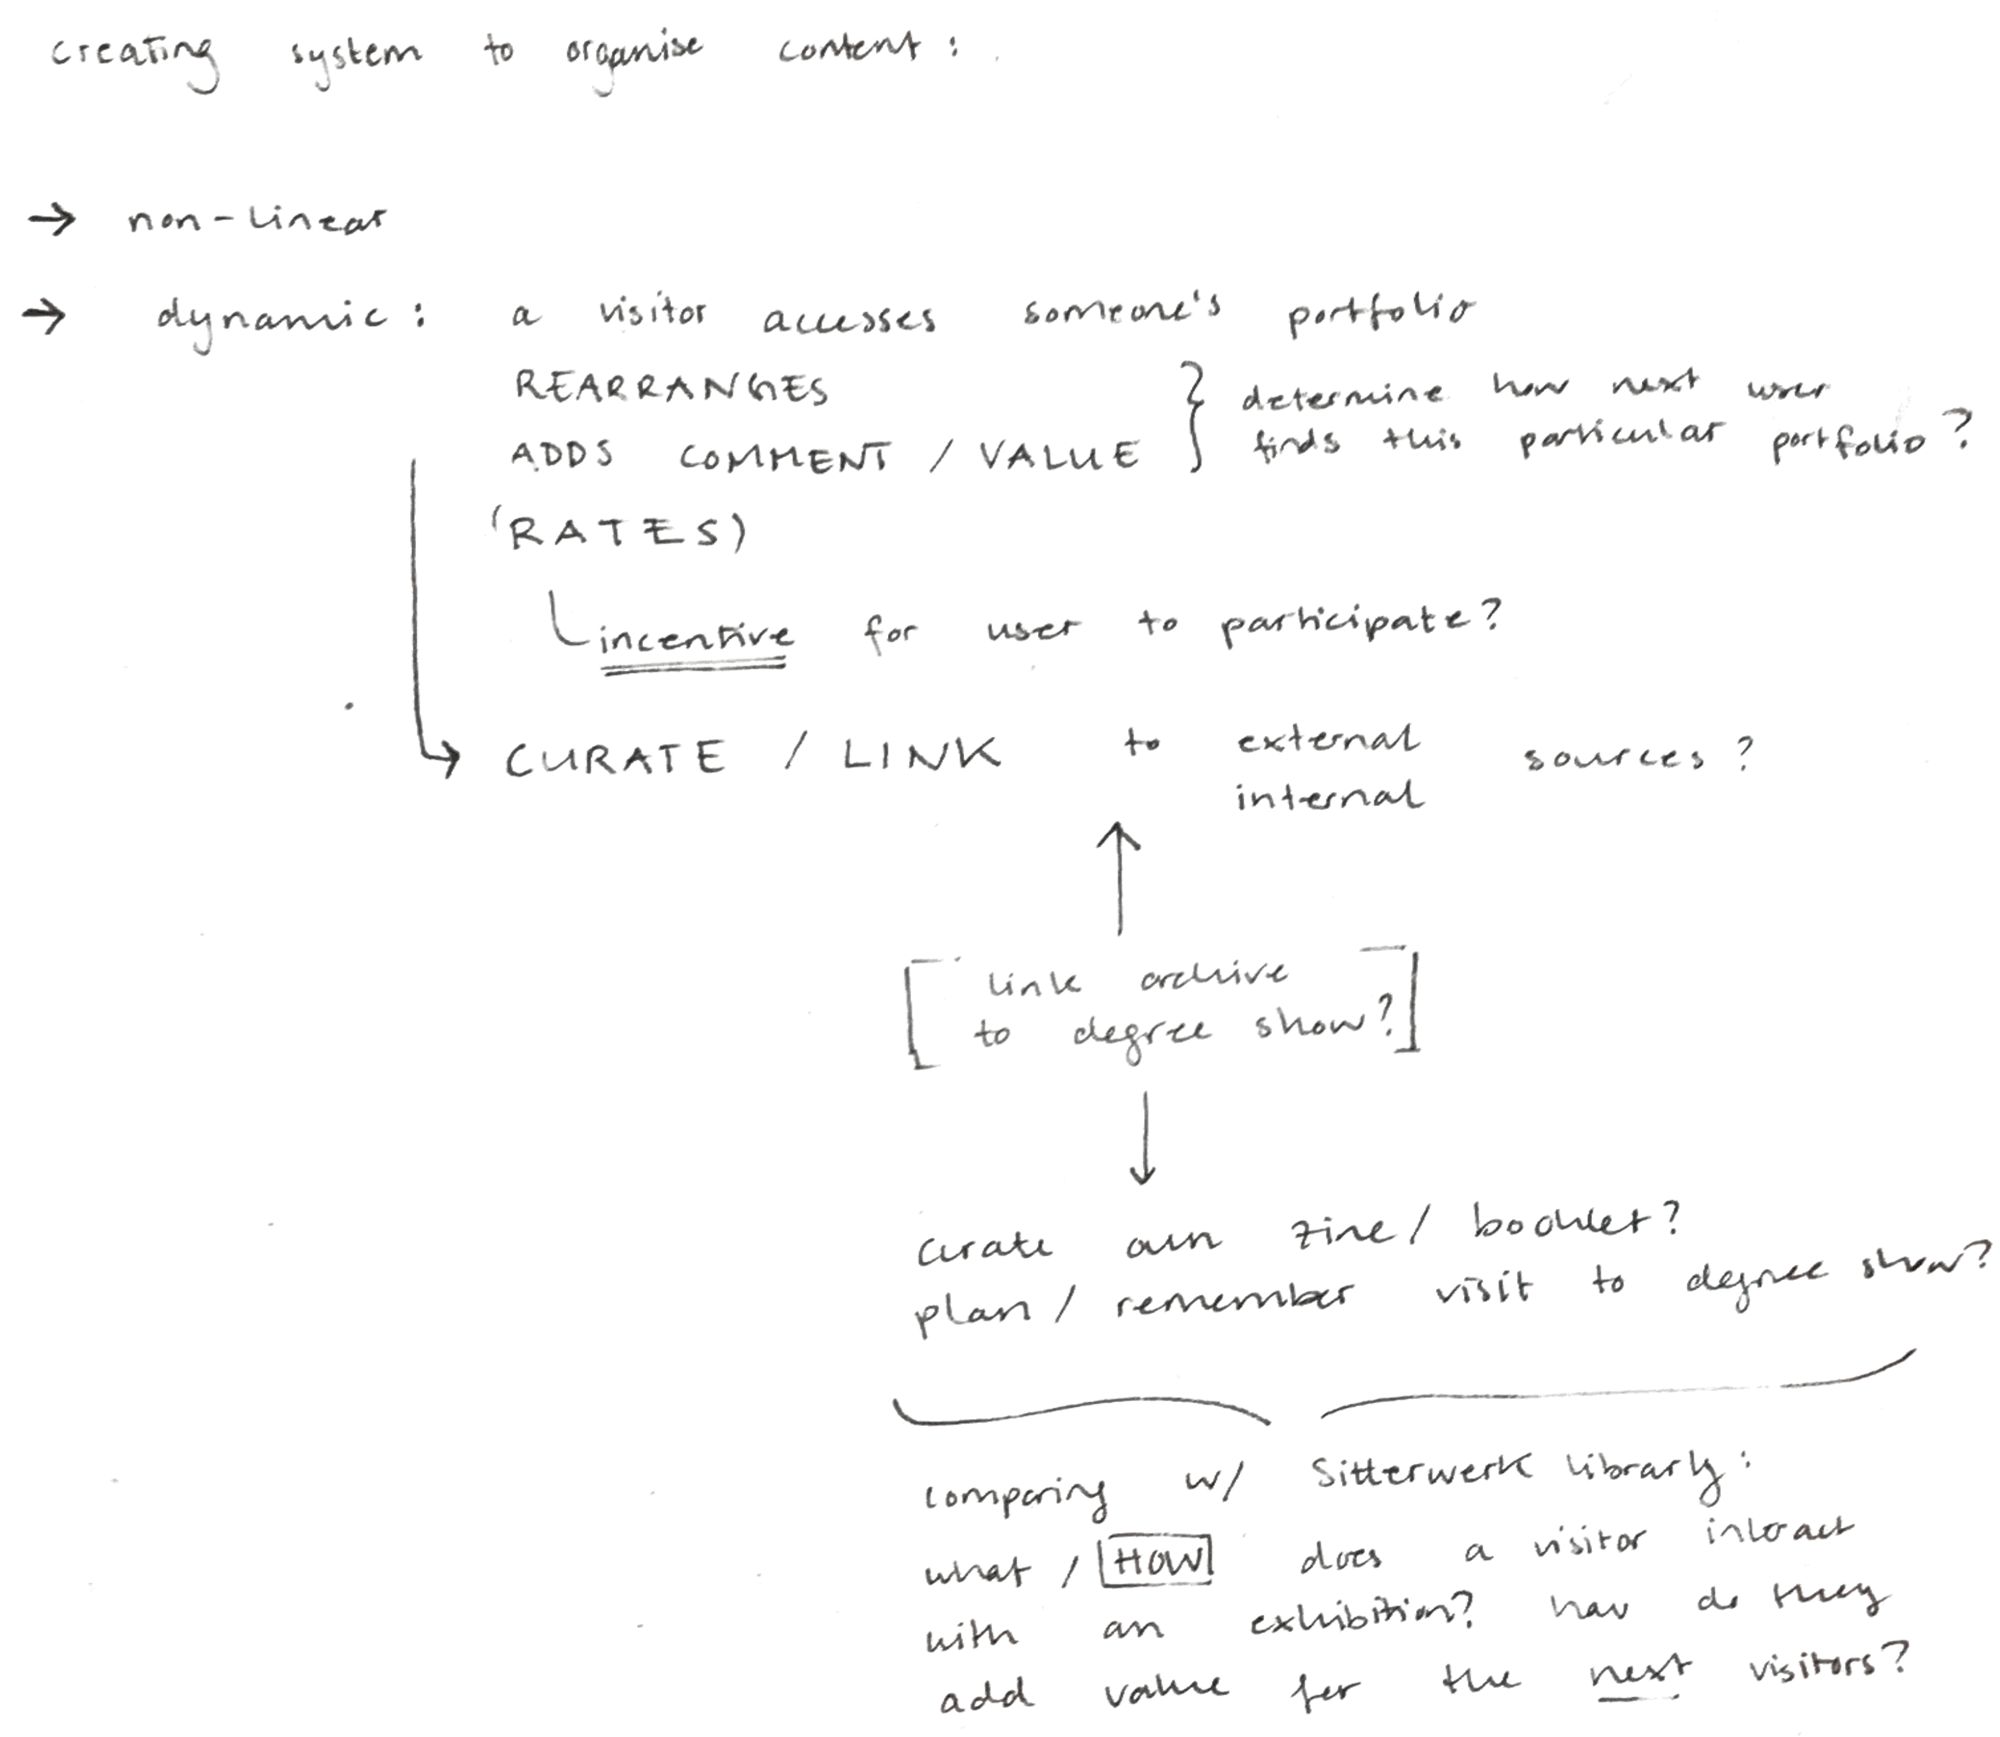 creating system to organise content:
→ non-linear
→ dynamic: a visitor accesses someone's portfolio
REARRANGES
ADDS COMMENT / VALUE
} determine how next user
finds this particular portfolio?
(RATES)
incentive for user to participate?
CURATE / LINK to external sources?
internal
[link archive
to degree show?]
curate own zine / booklet?
plan / remember visit to degree show?
comparing w/ Sitterwerk library:
what / HOW does a visitor interact
with an exhibition? how do they
add value for the next visitors?